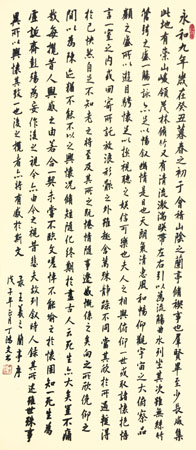 永和九年歲在癸丑暮春之初于會稽山陰之蘭亭脩稧事也群賢畢至少長咸集
此地有崇山峻領茂林脩竹又有清流激湍暎帶左右引以為流觴曲水列坐其次雖無絲竹
管弦之盛一觴一詠亦足以暢敘幽情是日也天朗氣清惠風和暢仰觀宇宙之大俯察品
類之盛所以遊目騁懷足以極視聽之娛信可樂也夫人之相與俯仰一世或取諸懷抱悟
言一室之內或因寄所託放浪形骸之外雖趣舍萬殊靜躁不同當其欣於所遇蹔得
於己快然自足不知老之將至及其所之既惓情隨事遷感慨係之矣向之所欣俛仰之
間以為陳迹猶不能不以之興懷況脩短隨化終期於盡古人云死生亦大矣豈不痛
哉每攬昔人興感之由若合一契未嘗不臨文嗟悼不能喻之於懷固知一死生為
虛誕齊彭殤為妄作後之視今亦由今之視昔悲夫故列敘時人錄其所述雖世殊事
異所以興懷其致一也後之攬者亦將有感於斯文
录王羲之蘭亭序
戊子年正月丁